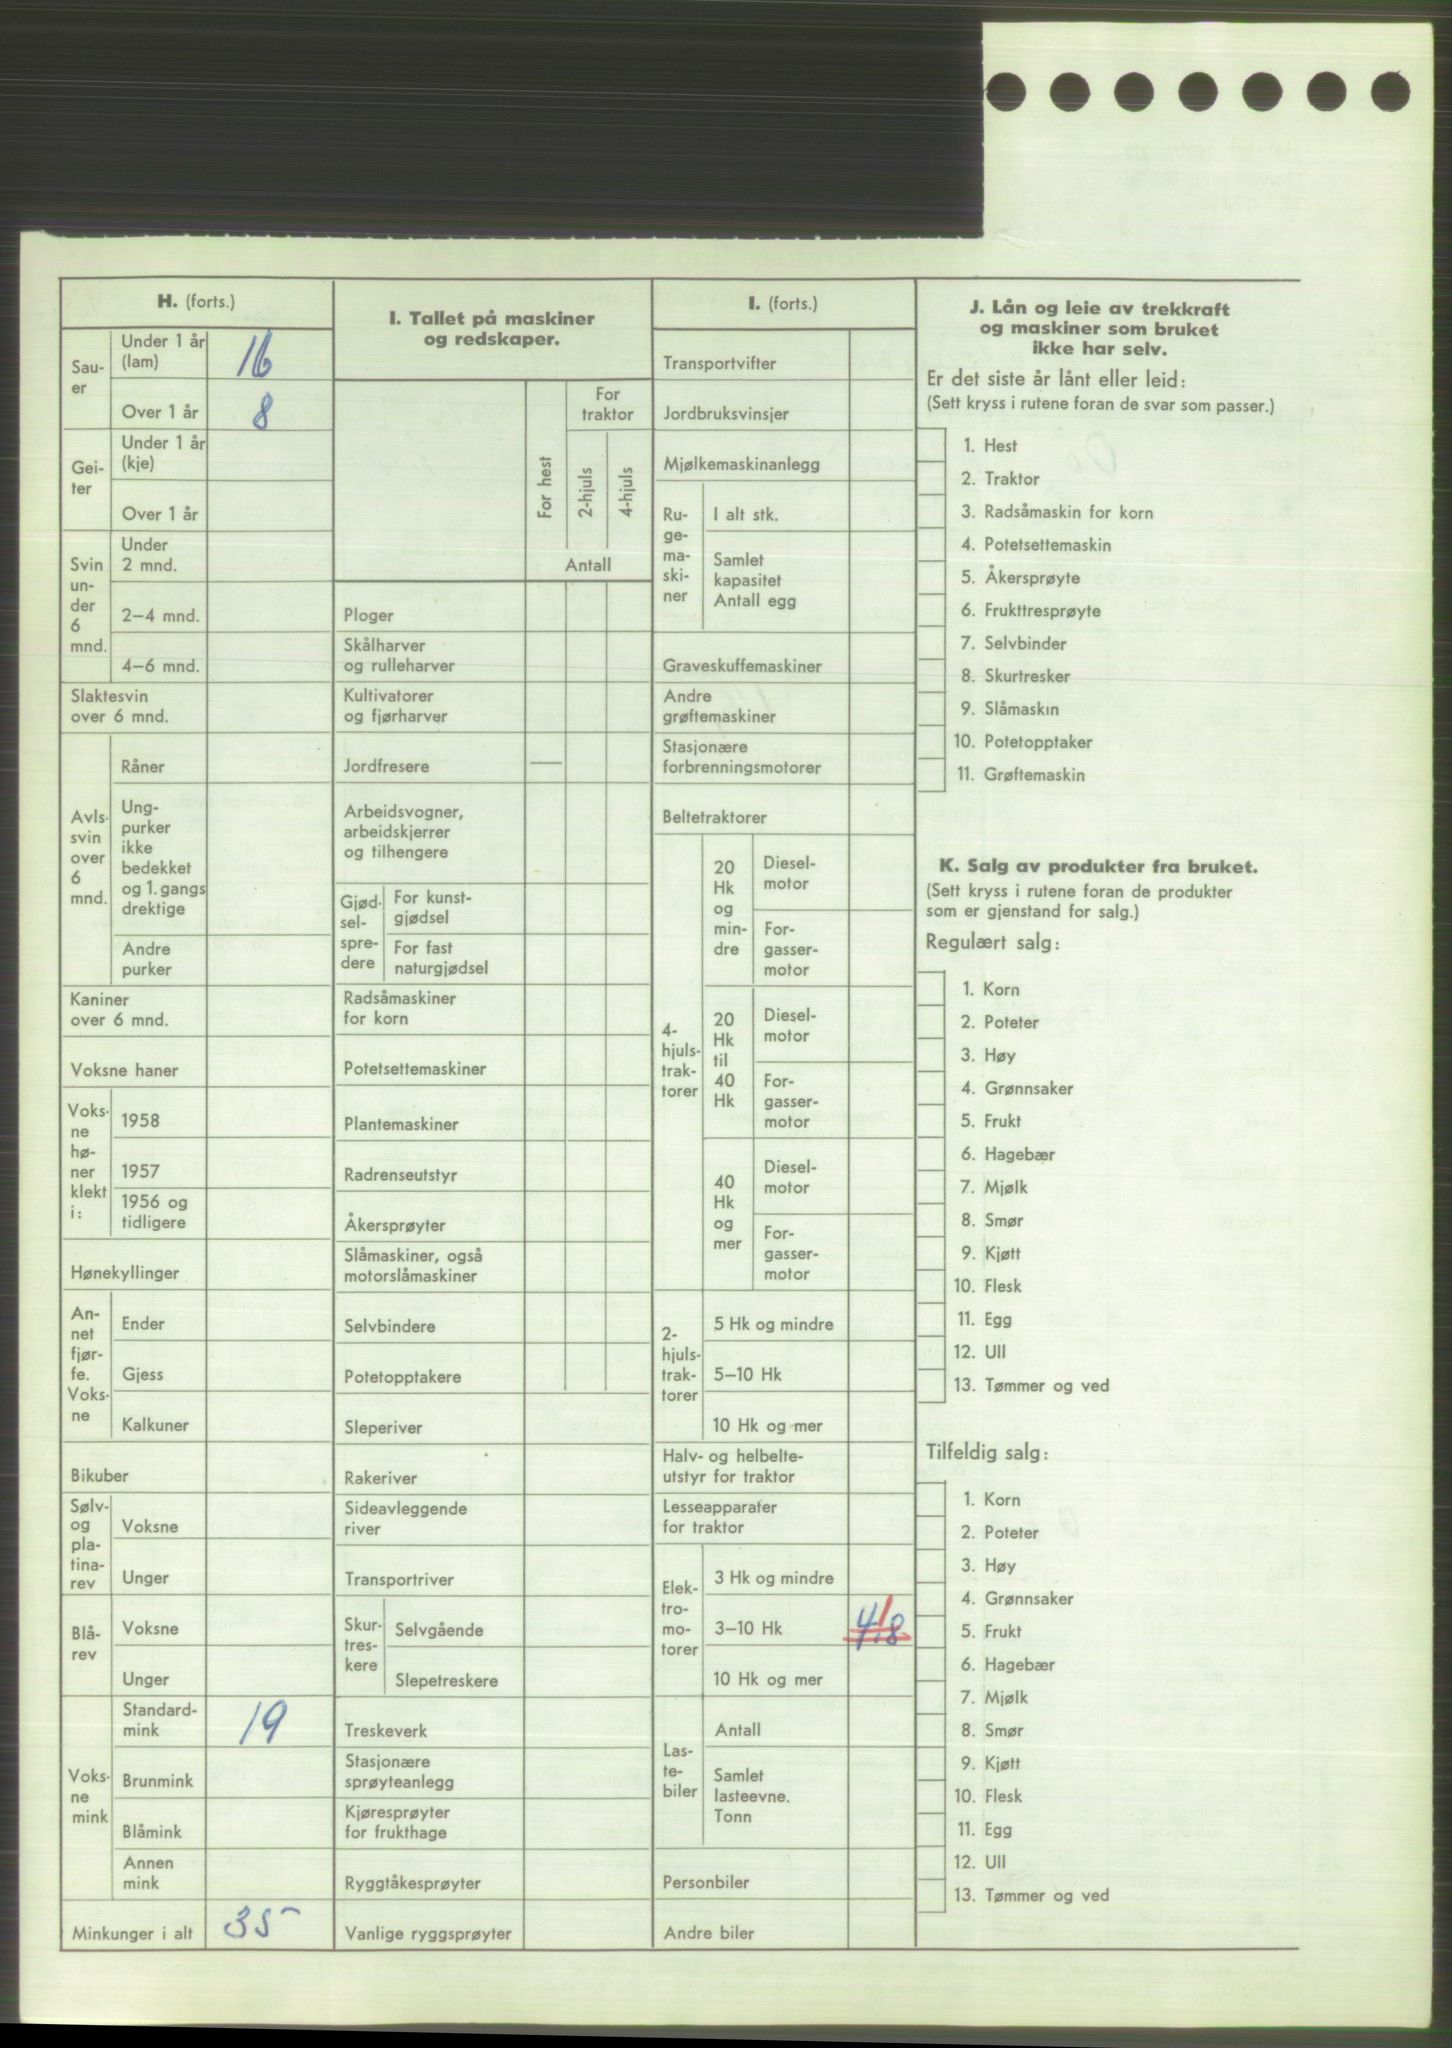 H. (forts.)
Sau-
er
Under 1 år
(lam)
16
Over 1 år
8
Gei-
ter
Under 1 år
(kje)
Over 1 år
Svin
un-
der
6
mnd.
Under
2 mnd.
2–4 mnd.
4–6 mnd.
Slaktesvin
over 6 mnd.
Avls-
svin
over
6
mnd.
Råner
Ung-
purker
ikke
bedekket
og 1. gangs
drektige
Andre
purker
Kaniner
over 6 mnd.
Voksne haner
Voks-
ne
hø-
ner
klekt
i:
1958
1957
1956 og
tidligere
Hønekyllinger
An-
net
fjør-
fe.
Voks-
ne
Ender
Gjess
Kalkuner
Bikuber
Sølv-
og
pla-
tina-
rev
Voksne
Unger
Blå-
rev
Voksne
Unger
Voks-
ne
mink
Standard-
mink
19
Brunmink
Blåmink
Annen
mink
Minkunger i alt
35
I. Tallet på maskiner
og redskaper.
For hest
For
traktor
2-hjuls
4-hjuls
Antall
Ploger
Skålharver
og rulleharver
Kultivatorer
og fjørharver
Jordfresere
—
Arbeidsvogner,
arbeidskjerrer
og tilhengere
Gjød-
sel-
spre-
dere
For kunst-
gjødsel
For fast
naturgjødsel
Radsåmaskiner
for korn
Potetsettemaskiner
Plantemaskiner
Radrenseutstyr
Åkersprøyter
Slåmaskiner, også
motorslåmaskiner
Selvbindere
Potetopptakere
Sleperiver
Rakeriver
Sideavleggende
river
Transportriver
Skur-
tres-
kere
Selvgående
Slepetreskere
Treskeverk
Stasjonære
sprøyteanlegg
Kjøresprøyter
for frukthage
Ryggtåkesprøyter
Vanlige ryggsprøyter
I. (forts.)
Transportvifter
Jordbruksvinsjer
Mjølkemaskinanlegg
Ru-
ge-
ma-
ski-
ner
I alt stk.
Samlet
kapasitet
Antall egg
Graveskuffemaskiner
Andre
grøftemaskiner
Stasjonære
forbrenningsmotorer
Beltetraktorer
4-
hjuls-
trak-
torer
20
Hk
og
min-
dre
Diesel-
motor
For-
gasser-
motor
20
Hk
til
40
Hk
Diesel-
motor
For-
gasser-
motor
40
Hk
og
mer
Diesel-
motor
For-
gasser-
motor
2-
hjuls-
trak-
torer
5 Hk og mindre
5–10 Hk
10 Hk og mer
Halv- og helbelte-
utstyr for traktor
Lesseapparater
for traktor
Elek-
tro-
mo-
torer
3 Hk og mindre
3–10 Hk
1
4.8
10 Hk og mer
Las-
te-
biler
Antall
Samlet
lasteevne.
Tonn
Personbiler
Andre biler
J. Lån og leie av trekkraft
og maskiner som bruket
ikke har selv.
Er det siste år lånt eller leid:
(Sett kryss i rutene foran de svar som passer.)
1. Hest
2. Traktor
3. Radsåmaskin for korn
4. Potetsettemaskin
5. Åkersprøyte
6. Frukttresprøyte
7. Selvbinder
8. Skurtresker
9. Slåmaskin
10. Potetopptaker
11. Grøftemaskin
K. Salg av produkter fra bruket.
(Sett kryss i rutene foran de produkter
som er gjenstand for salg.)
Regulært salg:
1. Korn
2. Poteter
3. Høy
4. Grønnsaker
5. Frukt
6. Hagebær
7. Mjølk
8. Smør
9. Kjøtt
10. Flesk
11. Egg
12. Ull
13. Tømmer og ved
Tilfeldig salg:
1. Korn
2. Poteter
3. Høy
4. Grønnsaker
5. Frukt
6. Hagebær
7. Mjølk
8. Smør
9. Kjøtt
10. Flesk
11. Egg
12. Ull
13. Tømmer og ved